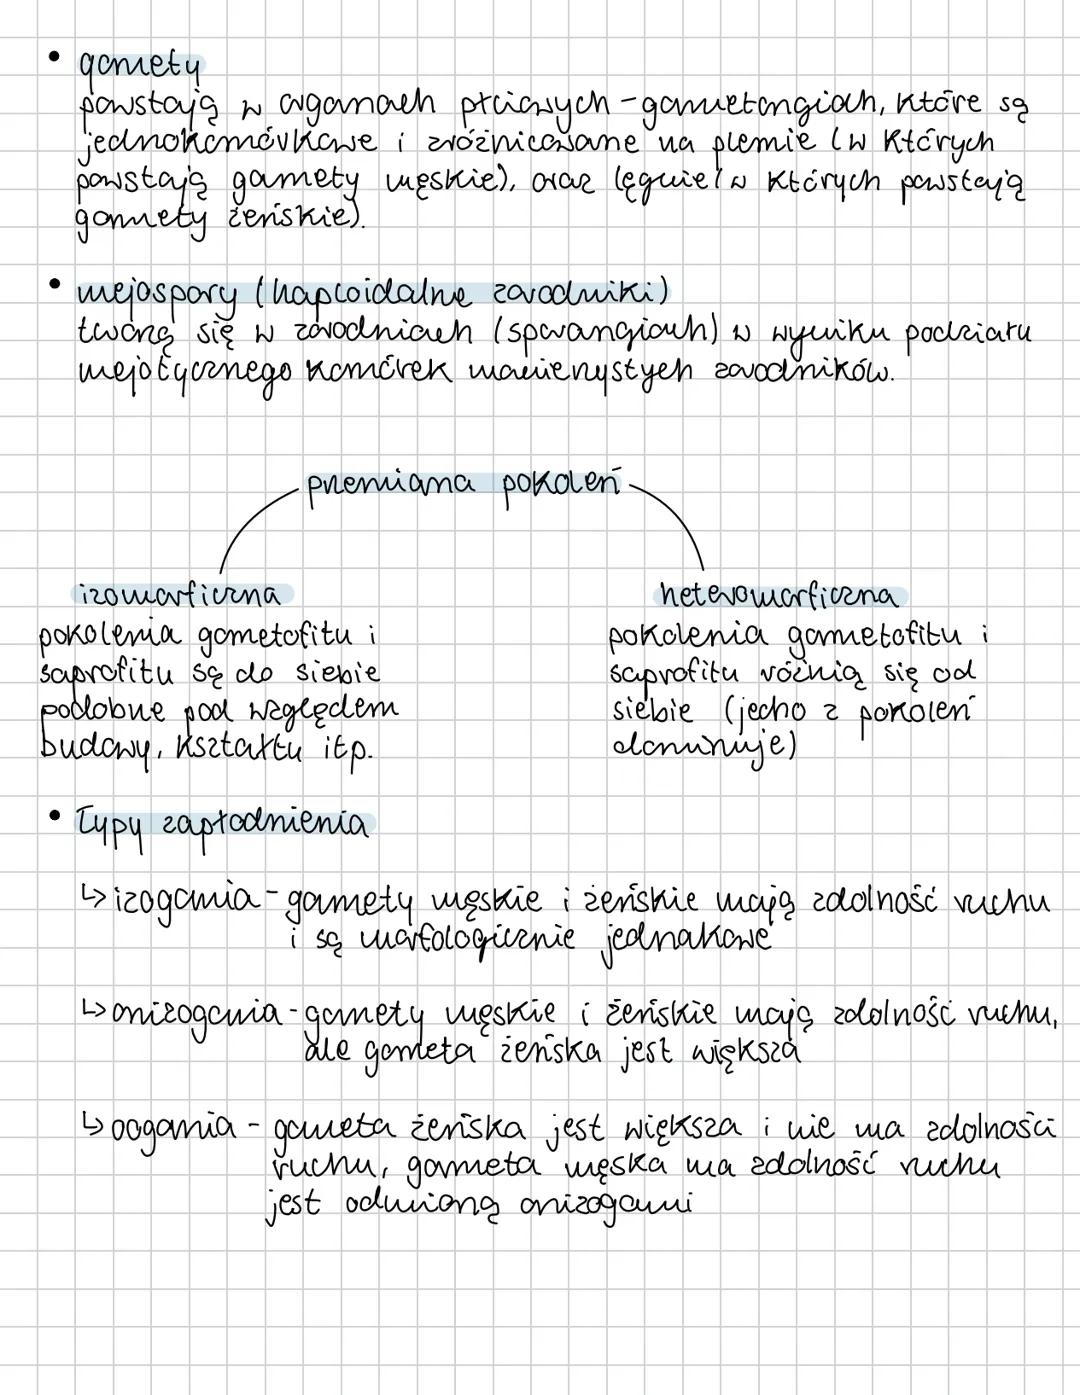 • gamety
powstają w organach płciowych - gametangiach, które są
jednokomórkowe i zróżnicowane na plemnie (w których
powstają gamety męskie), oraz lęgnie (w których powstają
gamety żeńskie).
• mejospory (haploidalne zarodniki)
tworzą się w zarodniach (sporangiach) w wyniku podziału
mejotycznego komórek macierzystych zarodników.
przemiana pokoleń
izomorficzna
pokolenia gametofitu i
saprofitu są do siebie
podobne pod względem
budowy, kształtu itp.
heteromorficzna
pokolenia gametofitu i
saprofitu różnią się od
siebie (jedno z pokoleń
dominuje)
• Typy zapłodnienia
↳ izogamia - gamety męskie i żeńskie mają zdolność ruchu
i są morfologicznie jednakowe
↳ anizogamia - gamety męskie i żeńskie mają zdolność ruchu,
ale gameta żeńska jest większa
↳ oogamia - gameta żeńska jest większa i nie ma zdolności
ruchu, gameta męska ma zdolność ruchu
jest odmianą anizogami